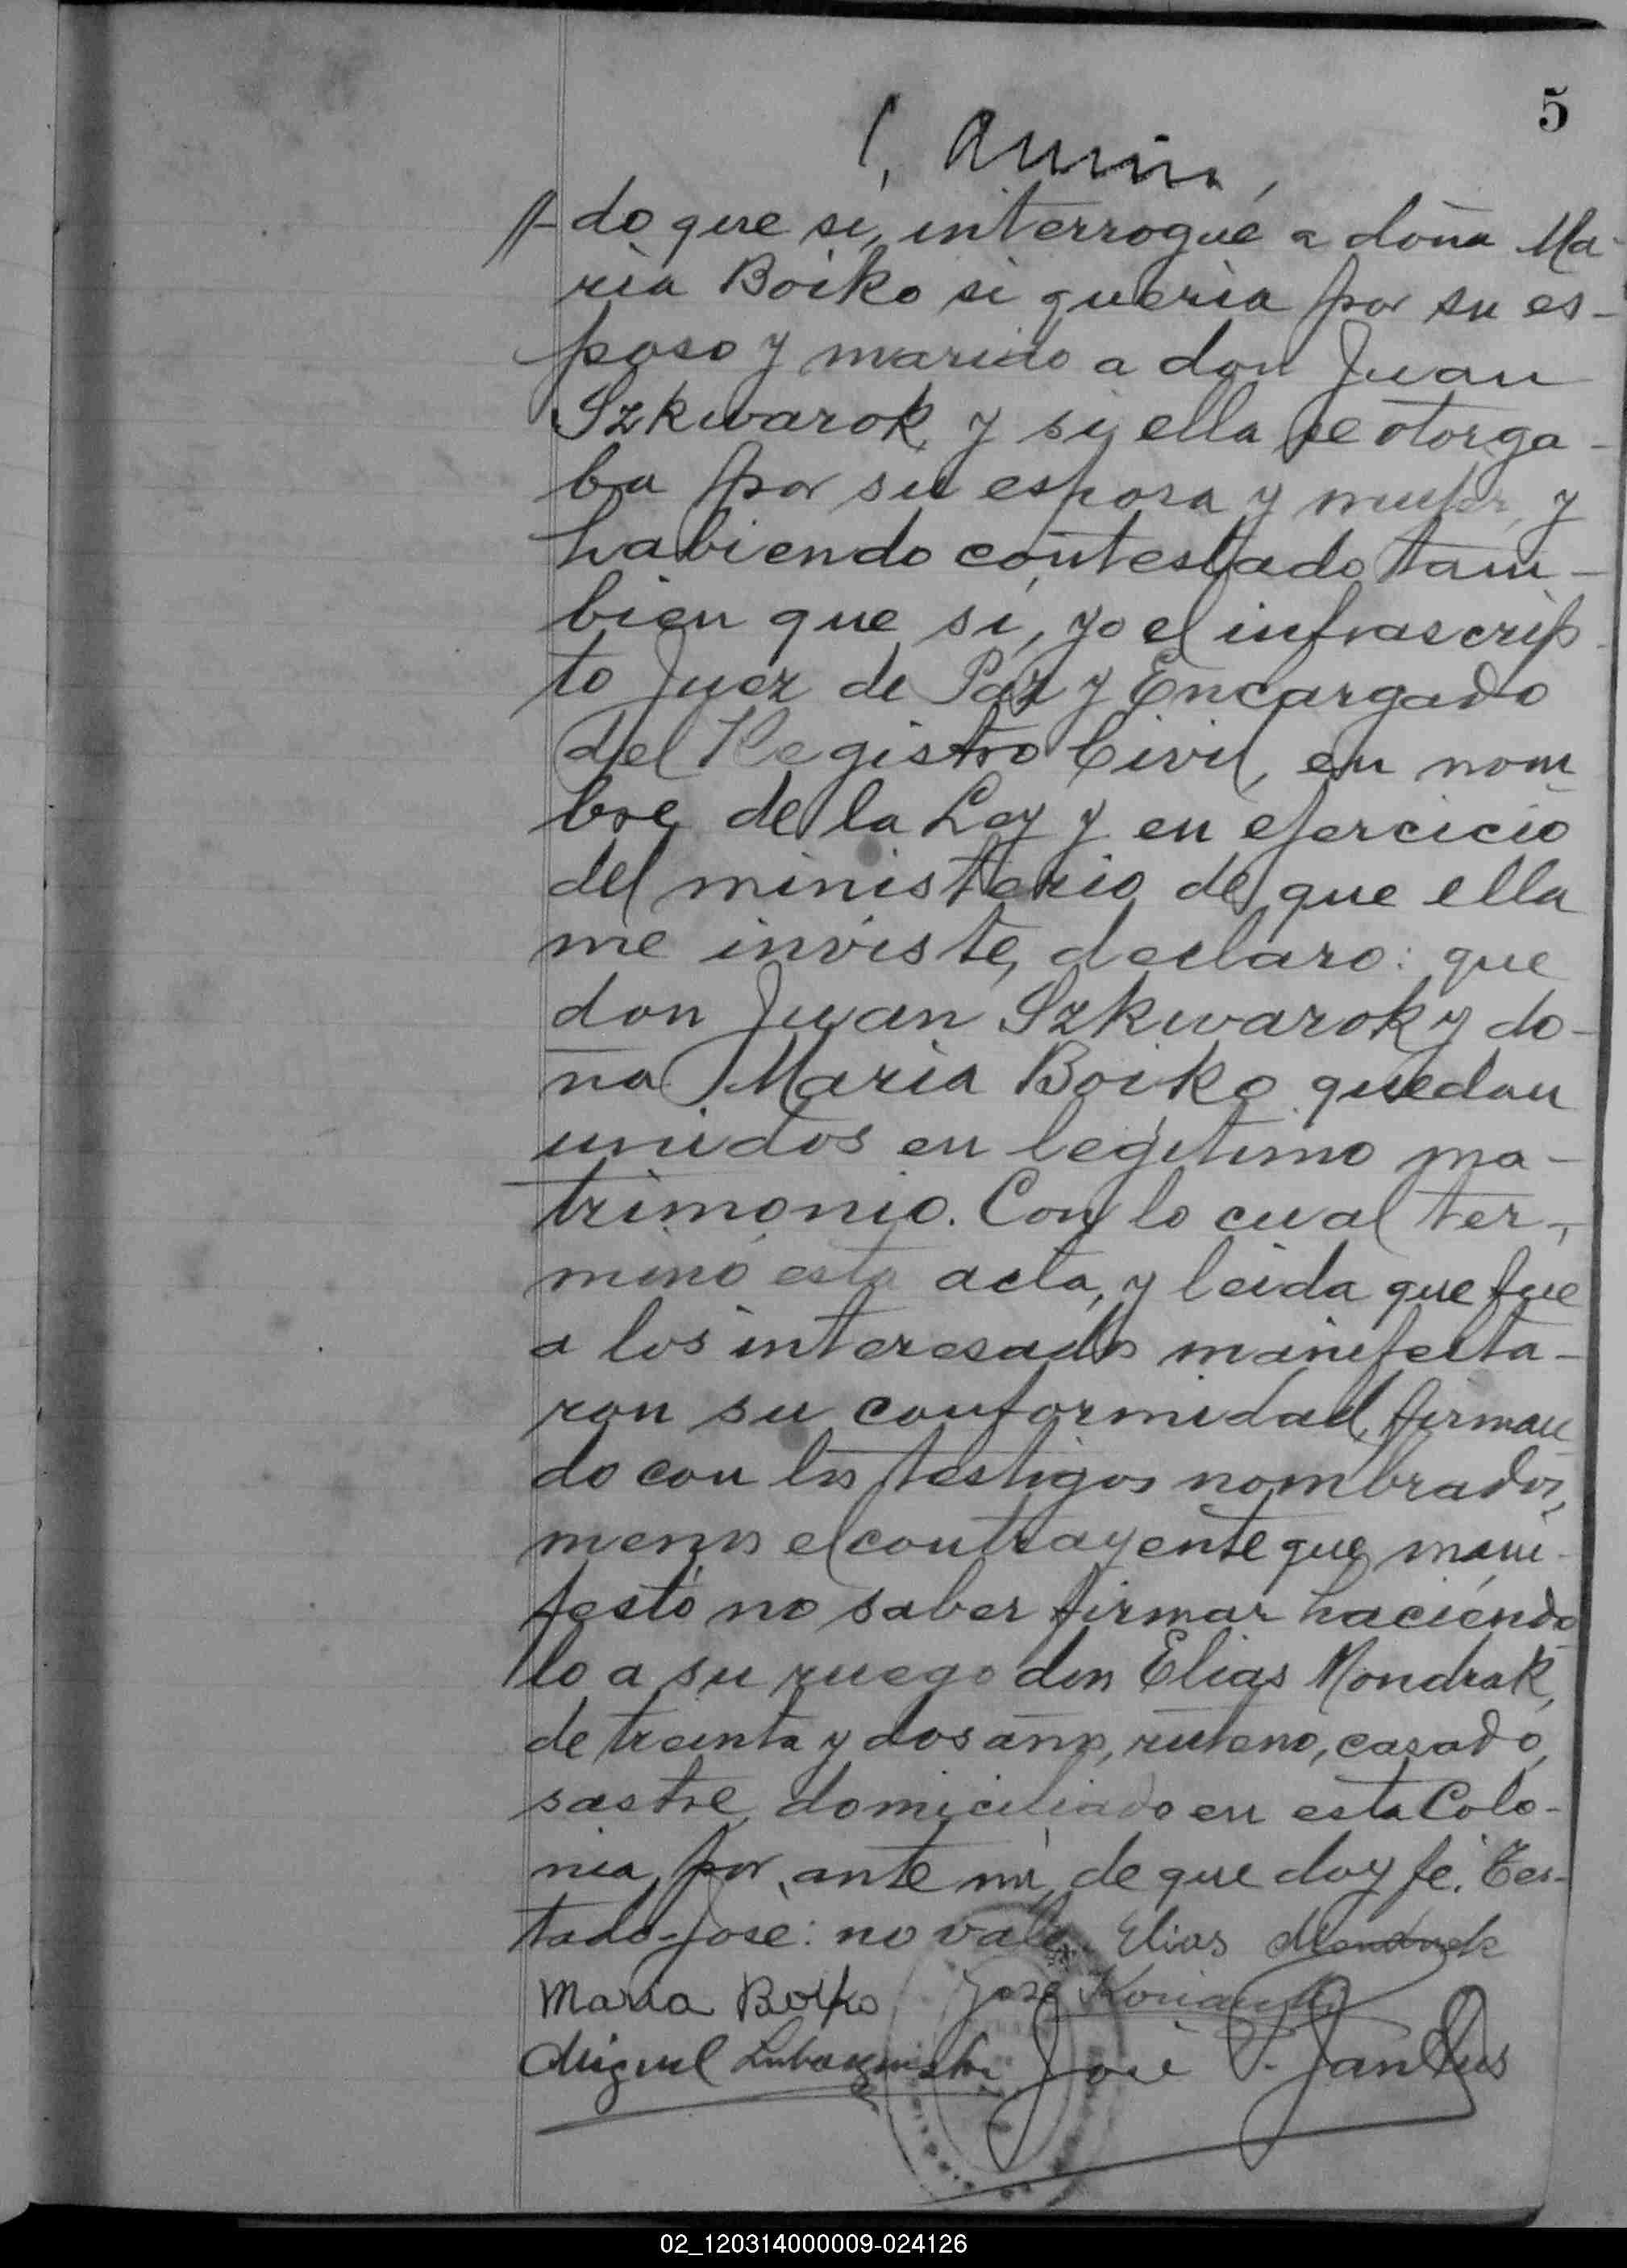 5
do que si, interrogué a doña Ma-
ria Boiko si queria por su es-
poso y marido a don Juan
Szkwarok y si ella se otorga-
ba por su esposa y mujer, y
habiendo contestado tam-
bien que si, yo el infrascrip-
to Juez de Paz y Encargado
del Registro Civil, en nom-
bre de la Ley y en ejercicio
del ministerio de que ella
me inviste, declaro: que
don Juan Szkwarok y do-
ña Maria Boiko quedan
unidos en legitimo ma-
trimonio. Con lo cual ter-
minó esta acta, y leida que fue
a los interesados manifesta-
ron su conformidad, firman-
do con los testigos nombrados,
menos el contrayente que mani-
festó no saber firmar haciendo
lo a su ruego don Elias Mondrak,
de treinta y dos años, ruteno, casado,
sastre, domiciliado en esta Colo-
nia, por ante mi, de que doy fé. Tes-
tado-José: no vale. Elias
Maria Boiko José
Miguel José
02_120314000009-024126